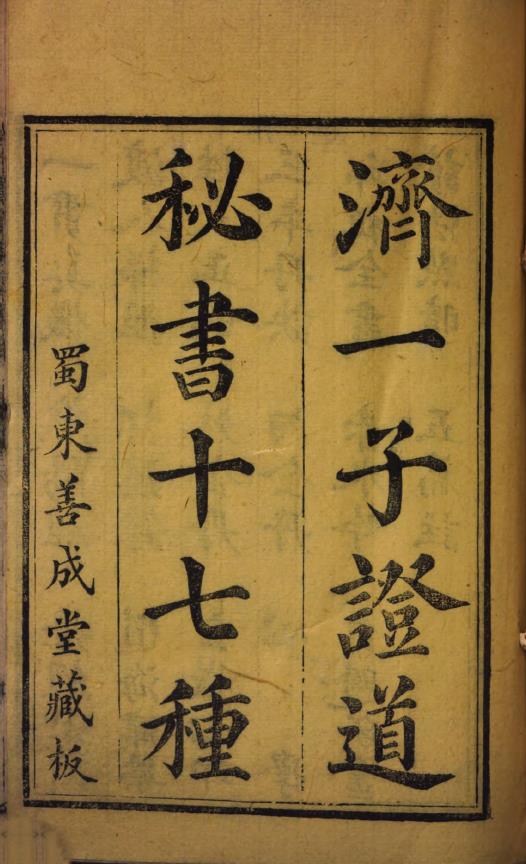 濟一子證道
秘書十七種
蜀東善成堂藏板